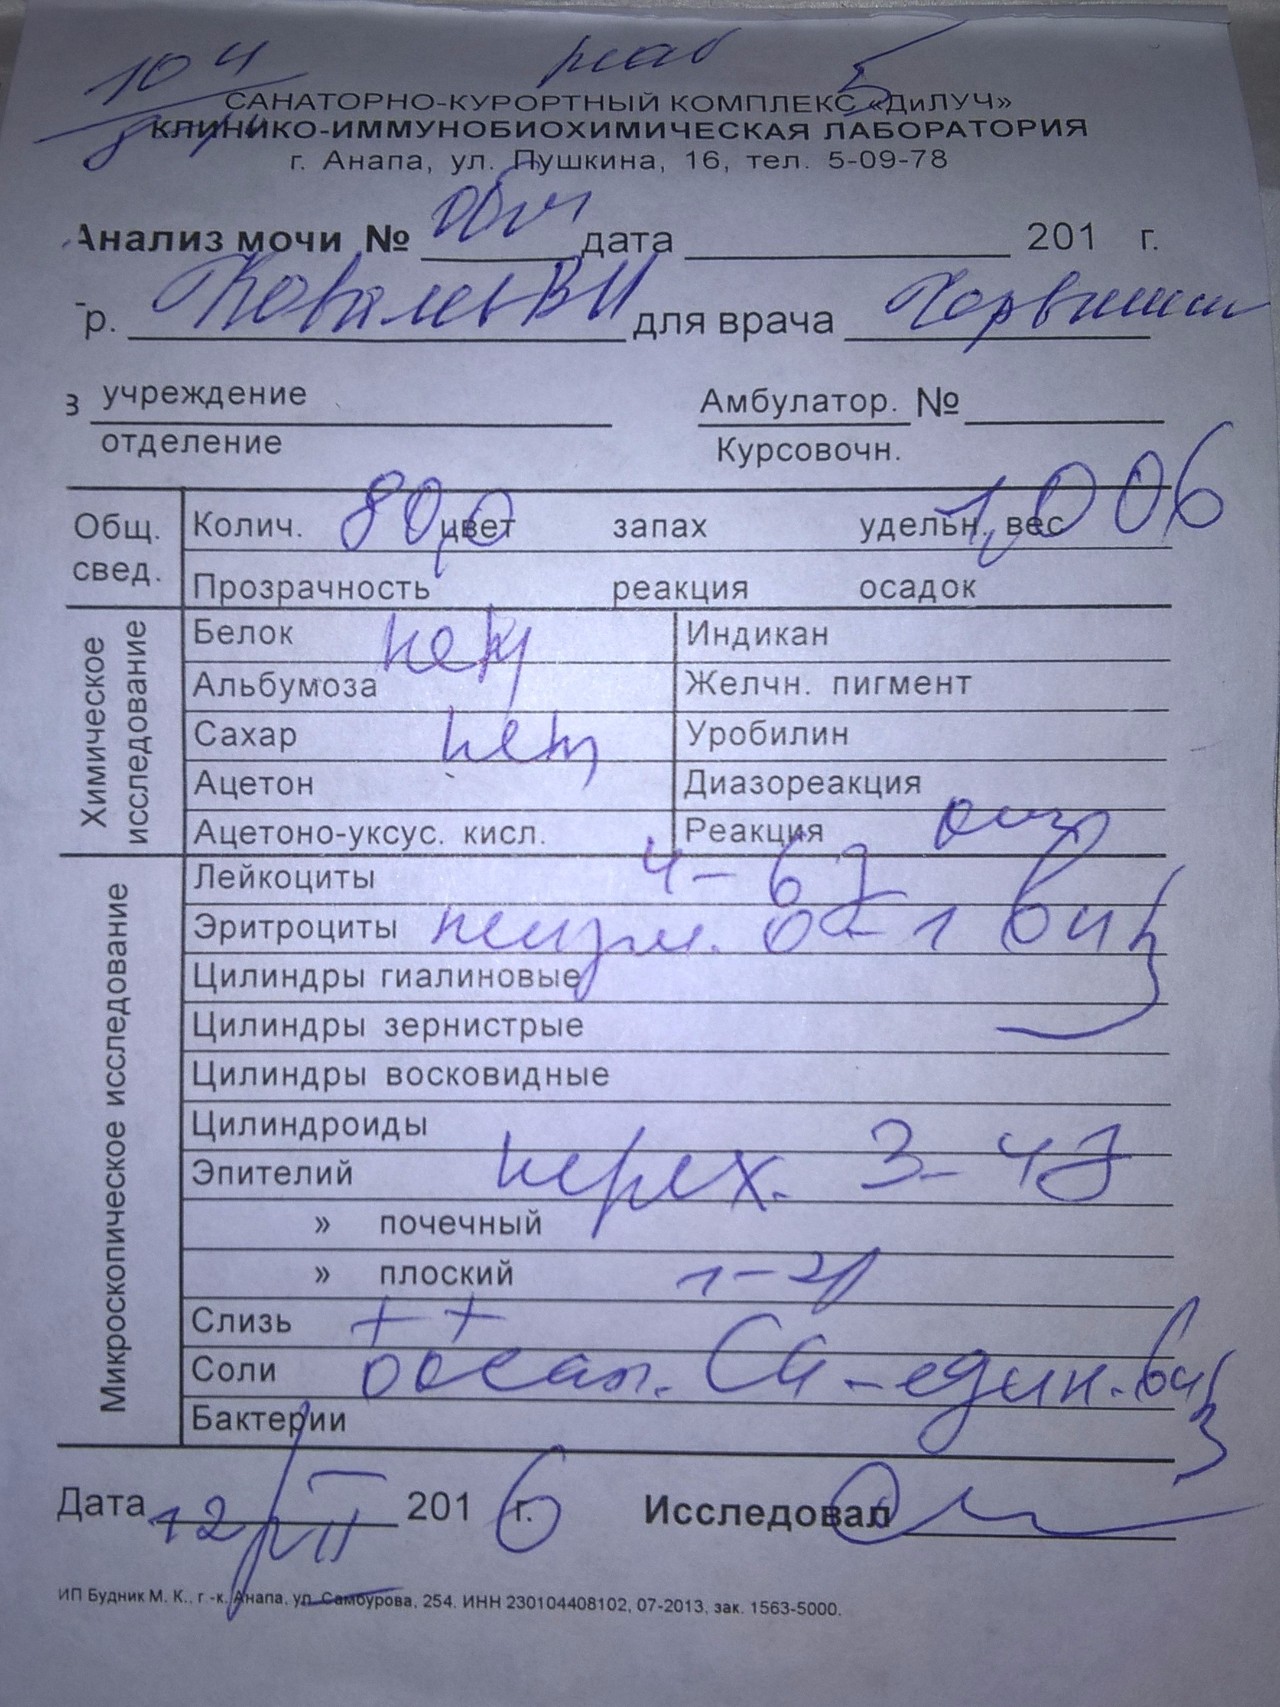 САНАТОРНО-КУРОРТНЫЙ КОМПЛЕКС «ДиЛУЧ»
КЛИНИКО-ИММУНОБИОХИМИЧЕСКАЯ ЛАБОРАТОРИЯ
г. Анапа, ул. Пушкина, 16, тел. 5-09-78
Анализ мочи № общ дата 201 г.
р. для врача
з учреждение Амбулатор. №
отделение Курсовочн.
Общ. свед.
Колич. 80,0 цвет запах удельн. вес 1,006
Прозрачность реакция осадок
Химическое исследование
Белок нет Индикан
Альбумоза Желчн. пигмент
Сахар нет Уробилин
Ацетон Диазореакция
Ацетоно-уксус. кисл. Реакция
Микроскопическое исследование
Лейкоциты 4-6
Эритроциты неизм. 0-1 в п/з
Цилиндры гиалиновые
Цилиндры зернистрые
Цилиндры восковидные
Цилиндроиды
Эпителий перех. 3-4
» почечный
» плоский 1-2
Слизь ++
Соли оксал. Са-един. в п/з
Бактерии
Дата 12/VII 2016 г. Исследовал
ИП Будник М. К., г.-к. Анапа, ул. Самбурова, 254. ИНН 230104408102, 07-2013, зак. 1563-5000.